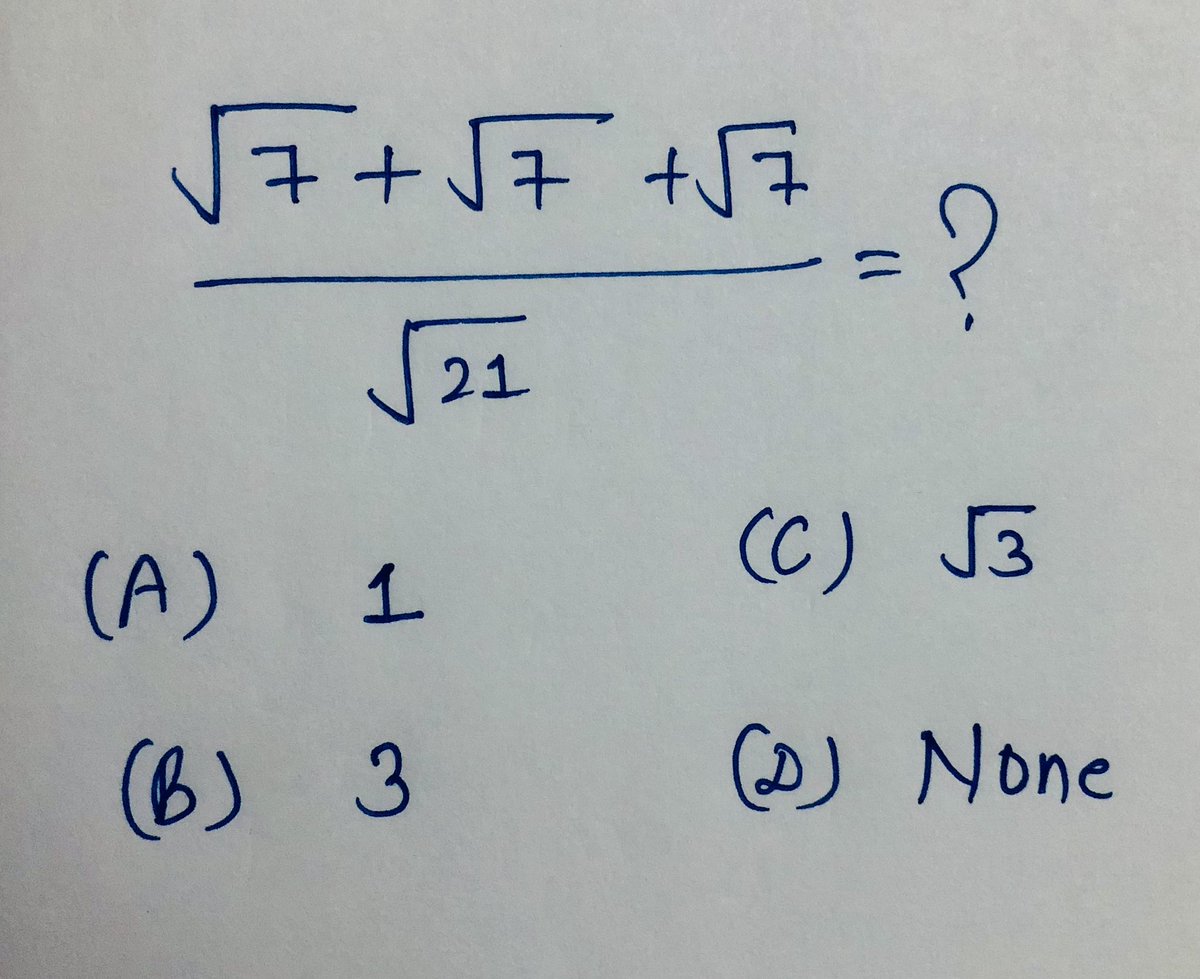 √7 + √7 + √7
= ?
√21
(A) 1
(C) √3
(B) 3
(D) None